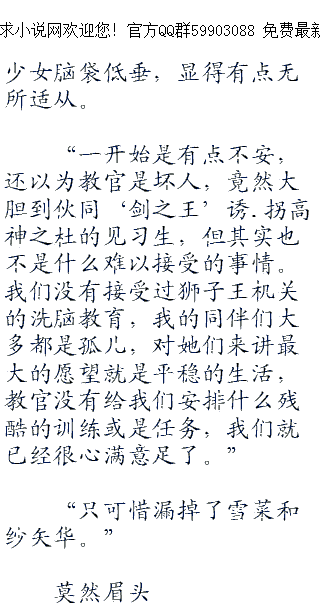 求小说网欢迎您！官方QQ群59903088 免费最新
少女脑袋低垂，显得有点无
所适从。
“一开始是有点不安，
还以为教官是坏人，竟然大
胆到伙同‘剑之王’诱.拐高
神之杜的见习生，但其实也
不是什么难以接受的事情。
我们没有接受过狮子王机关
的洗脑教育，我的同伴们大
多都是孤儿，对她们来讲最
大的愿望就是平稳的生活，
教官没有给我们安排什么残
酷的训练或是任务，我们就
已经很心满意足了。”
“只可惜漏掉了雪菜和
纱矢华。”
莫然眉头